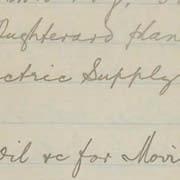 Oughterard Han
ectric Supply
oil &c for Movi